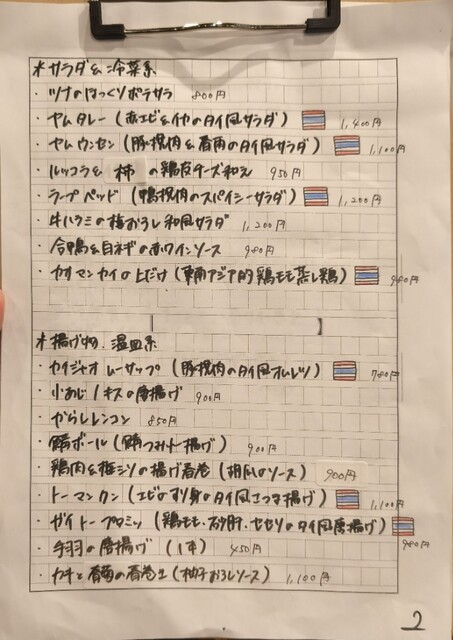 *サラダ&冷菜系
・ツナのほっくりポテサラ 800円
・ヤムタレー(赤エビ&イカのタイ風サラダ) 1,400円
・ヤムウンセン(豚挽肉&春雨のタイ風サラダ) 1,100円
・ルッコラ&柿の鶏皮チーズ和え 950円
・ラープペッド(鴨挽肉のスパイシーサラダ) 1,200円
・牛ハラミの梅おろし和風サラダ 1,200円
・合鴨&白ネギの赤ワインソース 980円
・カオマンカイの上だけ(東南アジア的鶏もも蒸し鶏) 980円
*揚げ物、温皿系
・カイジャオムーサップ(豚挽肉のタイ風オムレツ) 780円
・小あじ/キスの唐揚げ 900円
・からしレンコン 850円
・鯖ボール(鯖つみれ揚げ) 900円
・鶏肉&梅シソの揚げ春巻(胡瓜のソース) 900円
・トーマンクン(エビのすり身のタイ風さつま揚げ) 1,100円
・ガイトープロミッ(鶏もも・砂肝・セセリのタイ風唐揚げ) 980円
・手羽の唐揚げ(1本) 450円
・カキと春菊の春巻き(柚子おろしソース) 1,100円
2